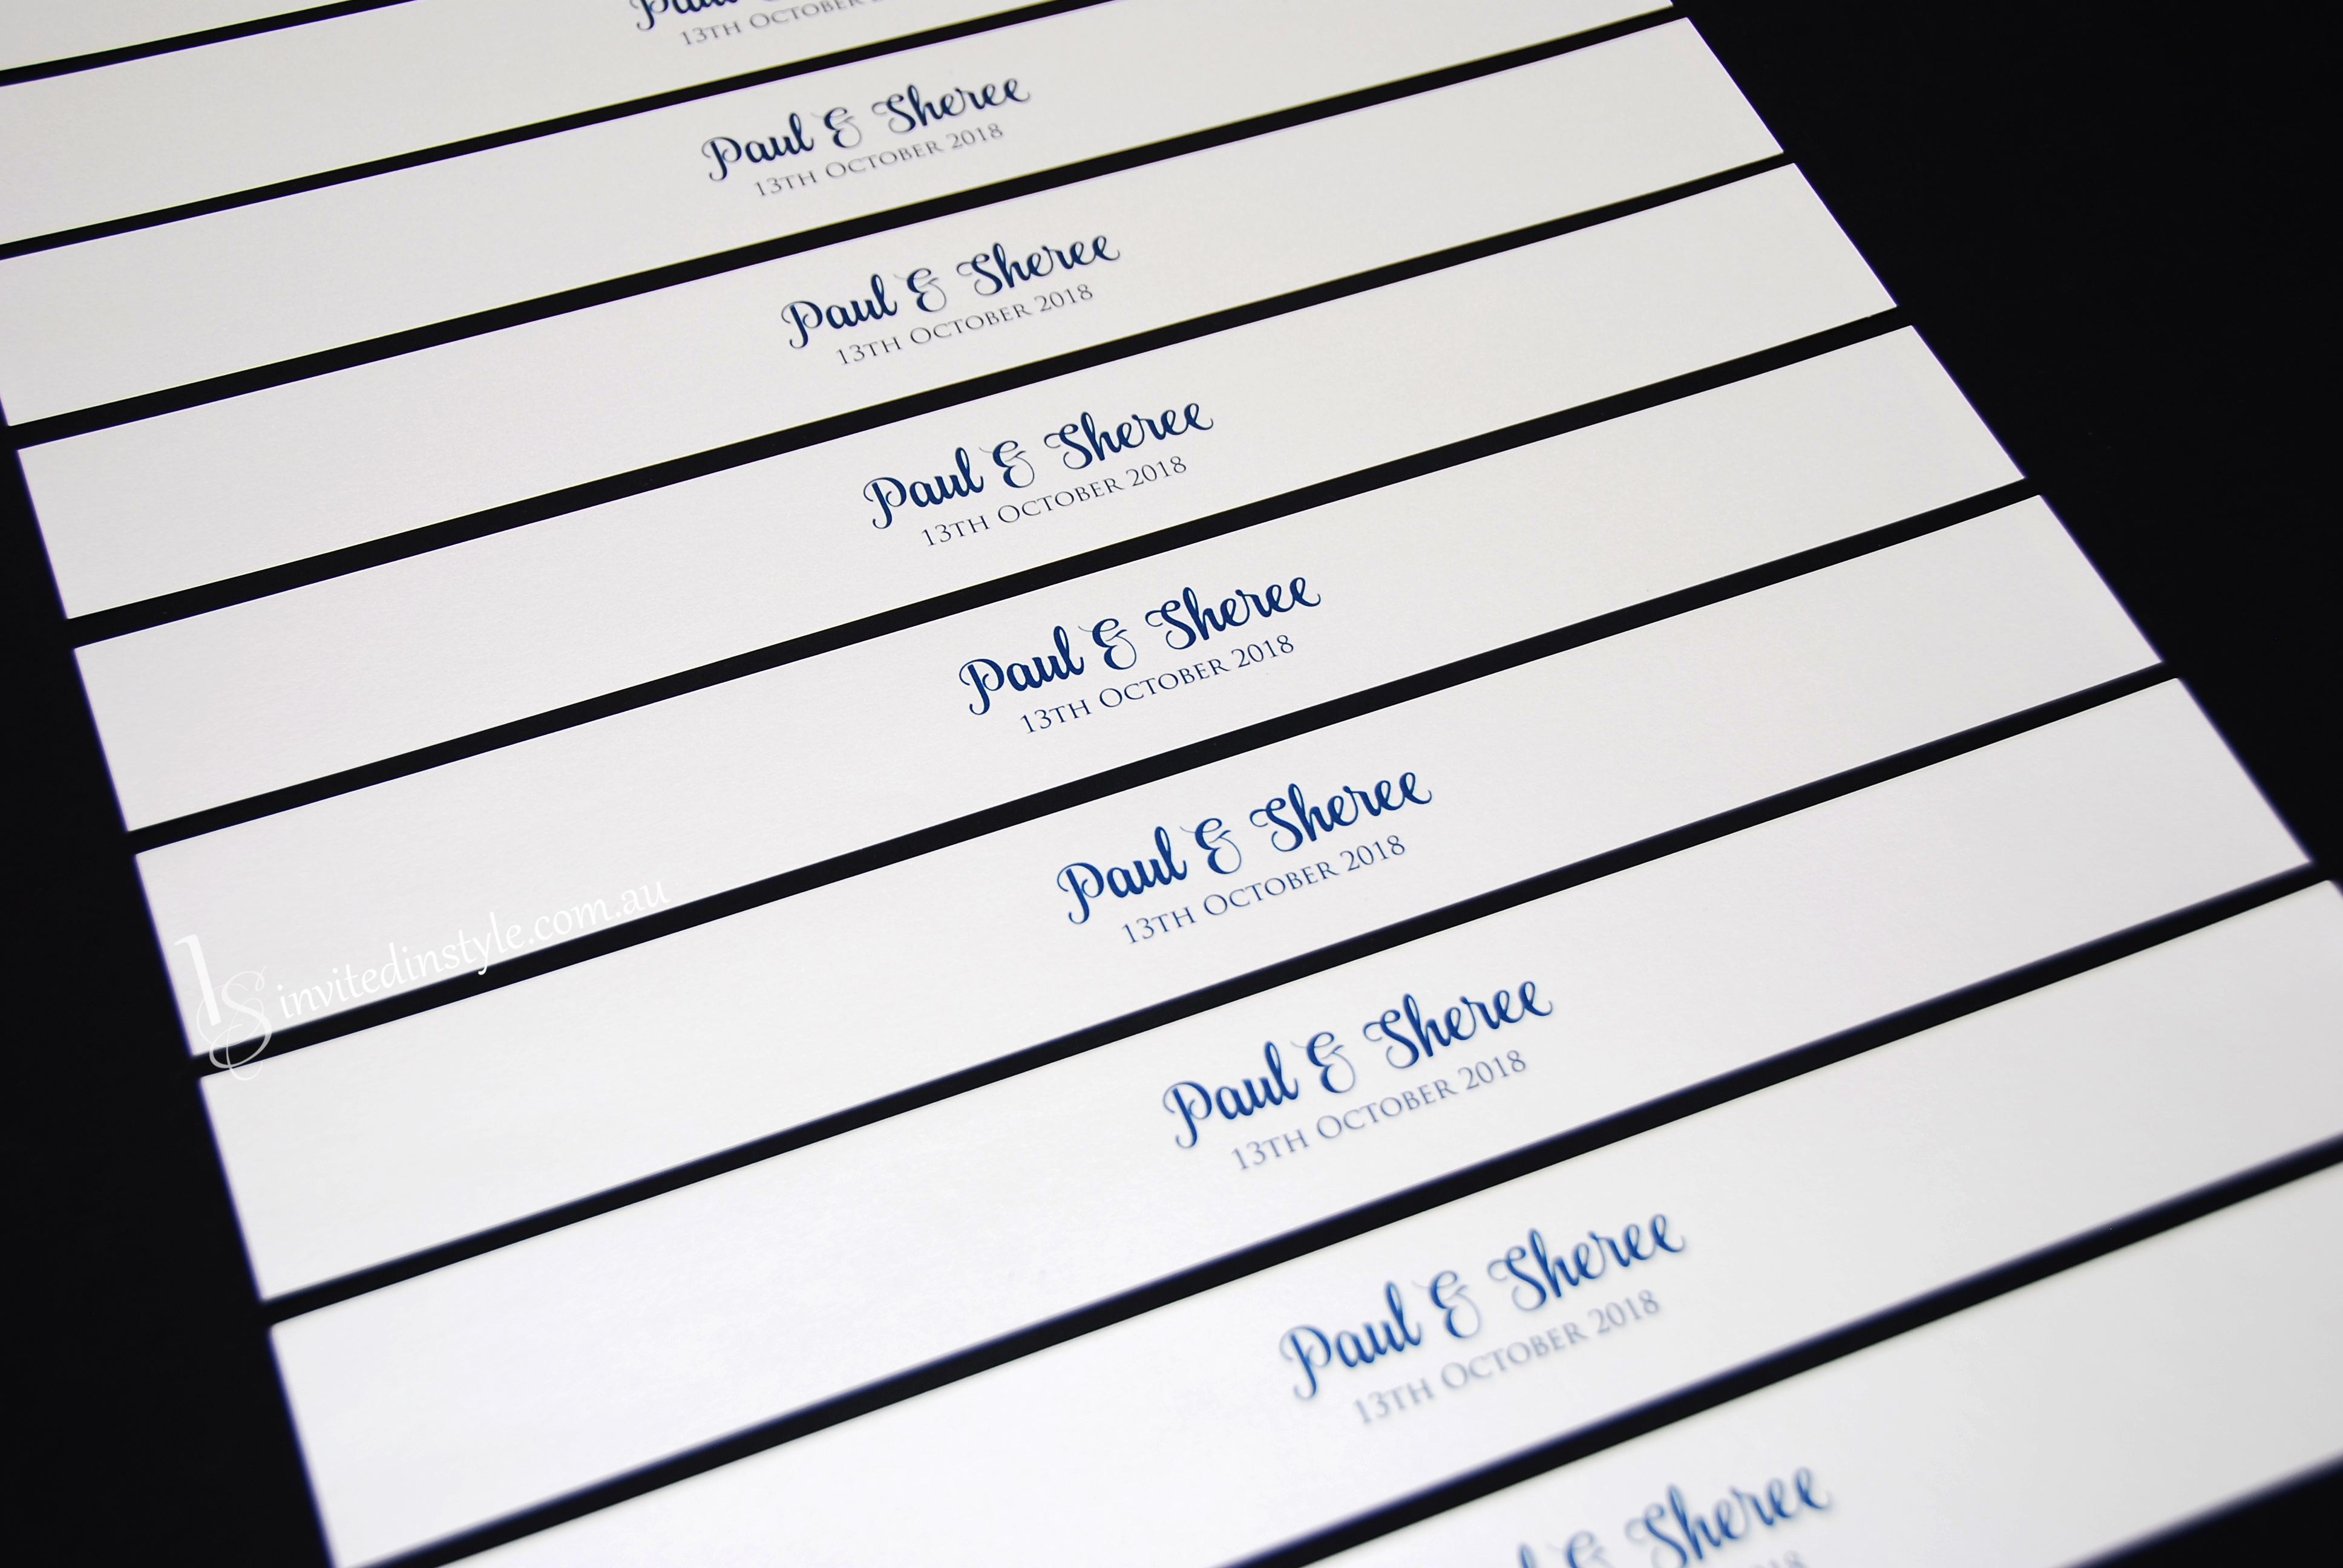 13TH OCTOBER
Paul & Sheree
13TH OCTOBER 2018
Paul & Sheree
13TH OCTOBER 2018
Paul & Sheree
13TH OCTOBER 2018
Paul & Sheree
13TH OCTOBER 2018
Paul & Sheree
13TH OCTOBER 2018
Paul & Sheree
13TH OCTOBER 2018
Paul & Sheree
13TH OCTOBER 2018
& Sheree
2018
IS invitedinstyle.com.au